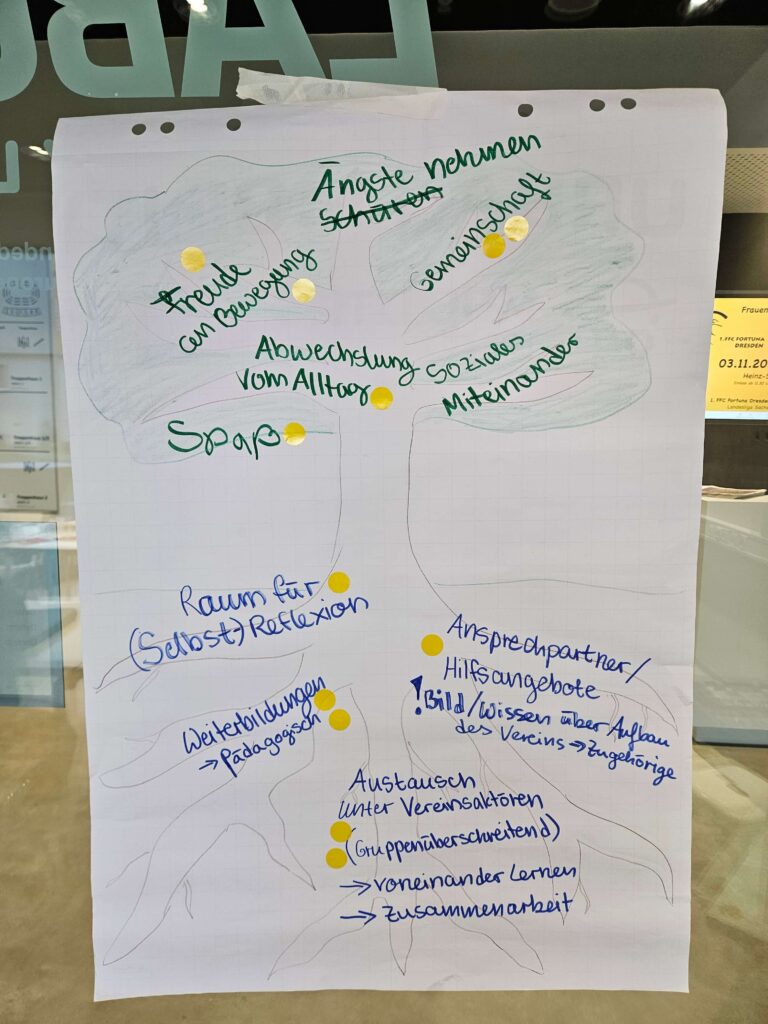 LABO
Ängste nehmen
Schüren
Gemeinschaft
Freude
an Bewegung
Abwechslung
vom Alltag
Soziales
Miteinander
Spaß
Raum für
(Selbst) Reflexion
Ansprechpartner/
Hilfsangebote
! Bild/Wissen über Aufbau
des Vereins → Zugehörige
Weiterbildungen
→ Pädagogisch
Austausch
unter Vereinsaktören
(Gruppenüberschreitend)
→ voneinander Lernen
→ Zusammenarbeit
Frauen
1. FFC FORTUNA
DRESDEN
03.11.20
Heinz-S
1. FFC Fortuna Dresden